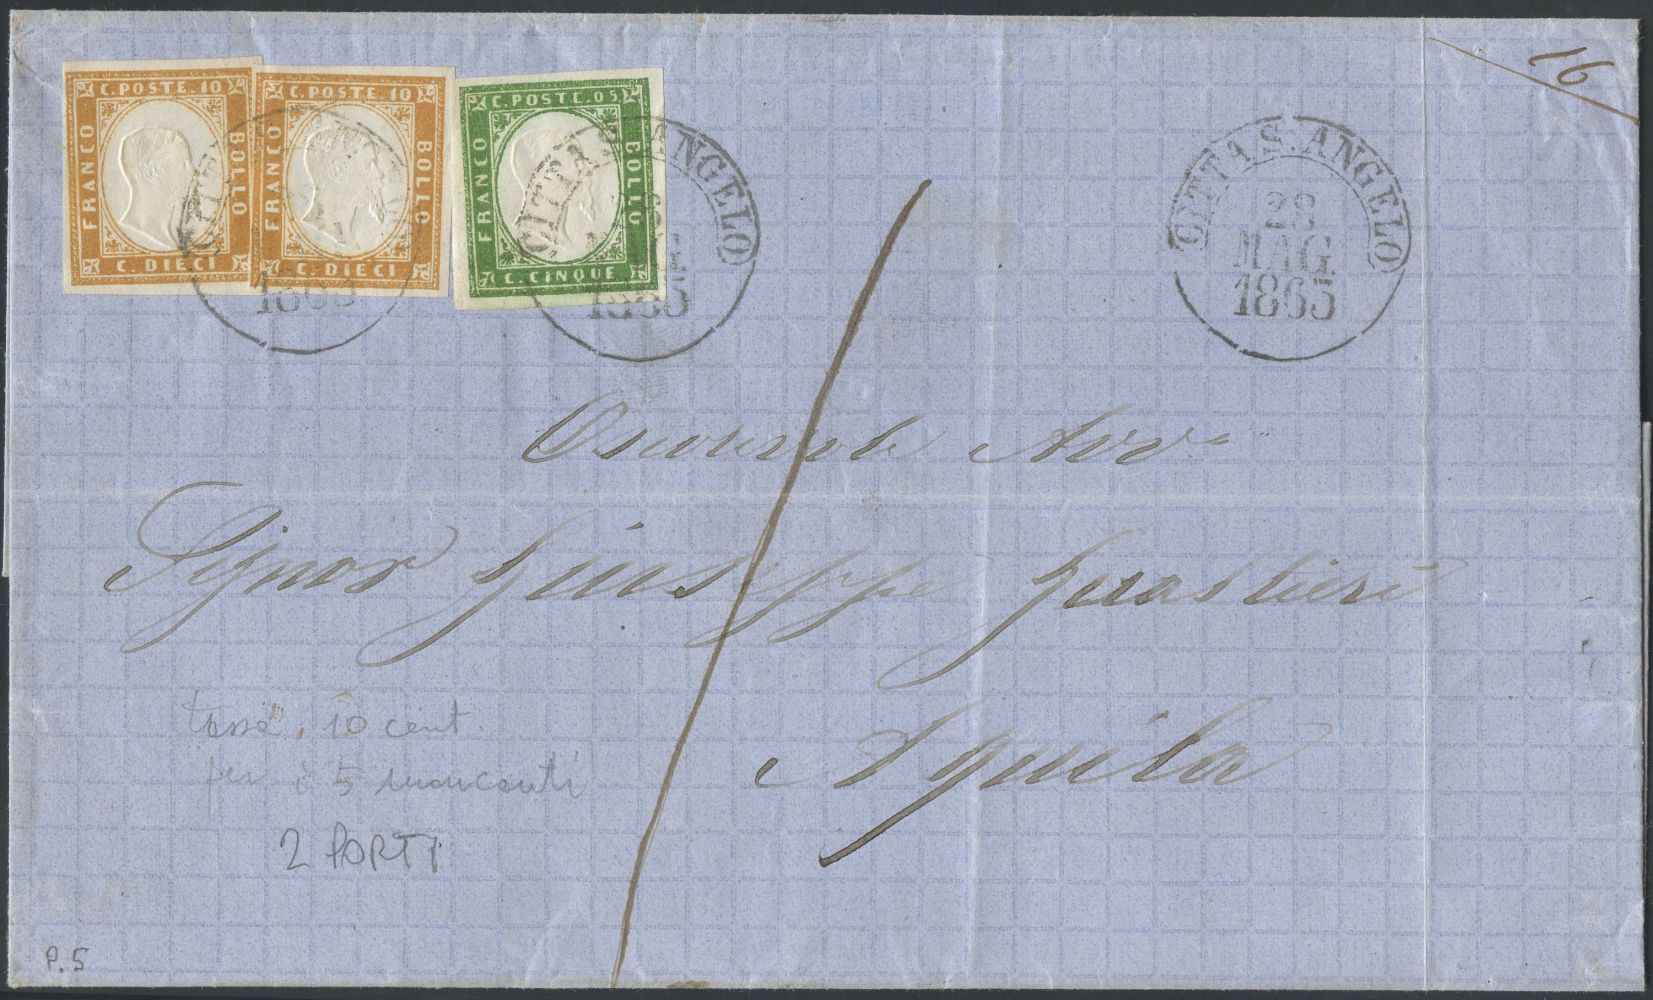 C. POSTE. 10
FRANCO
BOLLO
C. DIECI
C. POSTE. 10
FRANCO
BOLLO
C. DIECI
C. POSTE. 05
FRANCO
BOLLO
C. CINQUE
1863
CITTA S. ANGELO
1863
CITTA S. ANGELO
28
MAG.
1863
16
Signor Giuseppe Gualtieri
Aquila
tasse. 10 cent.
per i 5 mancanti
2 PORTI
P. 5